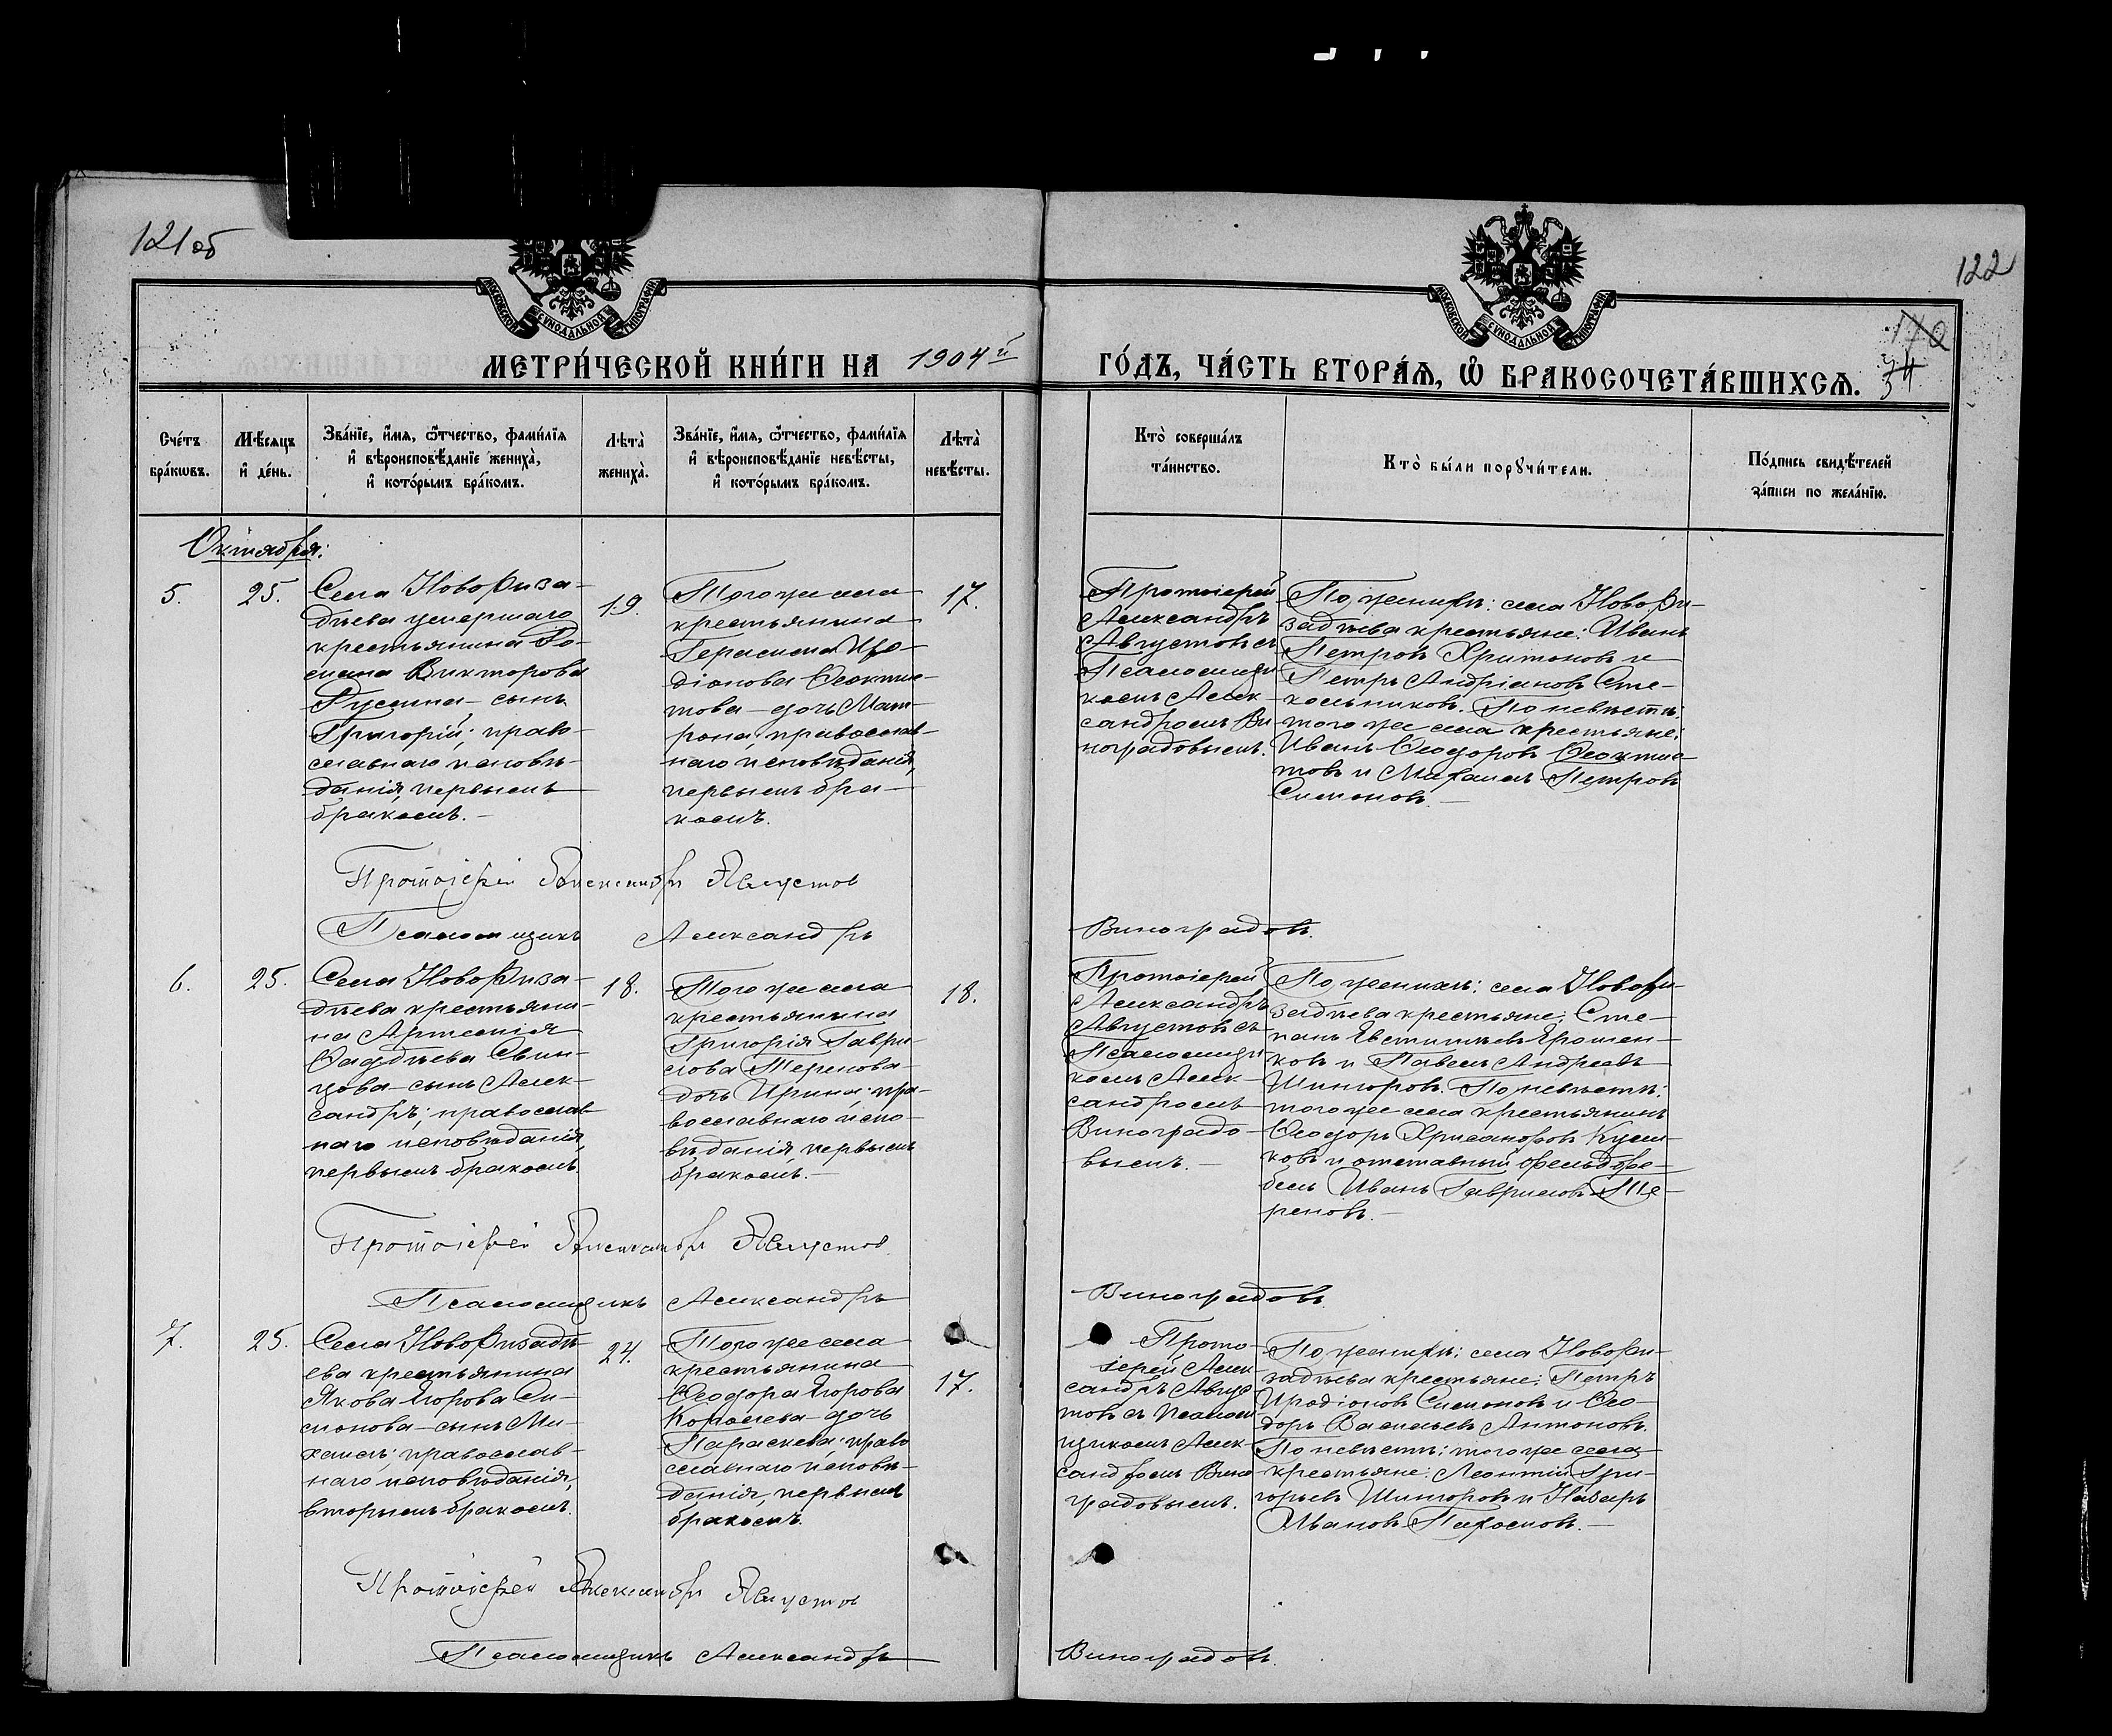 121 об
122
МОСКОВСКОЙ СѴНОДАЛЬНОЙ ТИПОГРАФІИ
МОСКОВСКОЙ СѴНОДАЛЬНОЙ ТИПОГРАФІИ
МЕТРИ́ЧЕСКОЙ КНИ́ГИ НА 1904й
ГО́ДЪ, ЧА́СТЬ ВТОРА́Ѧ, Ѡ҆ БРАКОСОЧЕТА́ВШИХСѦ.
34
Сче́тъ бра́кѡвъ.
Мѣ́сяцъ и҆ де́нь.
Зва́нїе, и҆́мѧ, ѻ҆́тчество, фами́лїѧ
и҆ вѣроисповѣ́данїе жениха̀,
и҆ кото́рымъ бра́комъ.
Лѣта̀ жениха̀.
Зва́нїе, и҆́мѧ, ѻ҆́тчество, фами́лїѧ
и҆ вѣроисповѣ́данїе невѣ́сты,
и҆ кото́рымъ бра́комъ.
Лѣта̀ невѣ́сты.
Кто̀ соверша́лъ
та́инство.
Кто̀ бы́ли порꙋчи́тели.
По́дпись свидѣ́телей
за́писи по жела́нїю.
Октября:
5.
25.
Села Новофиза-
дѣева умершаго
крестьянина Ро-
мана Викторова
Русина - сынъ
Григорій; право-
славнаго исповѣ-
данія, первымъ
бракомъ. -
19.
Того же села
крестьянина
Герасима Иро-
діонова Ѳеоктис-
това - дочь Мат-
рона; православ-
наго исповѣданія,
первымъ бра-
комъ.
17.
Протоіерей
Александръ
Августовъ съ
Псаломщи
комъ Алек-
сандромъ Ви
ноградовымъ.
По женихѣ: села Новофи-
задѣева крестьяне: Иванъ
Петровъ Хритоновъ и
Петръ Андріановъ Сте-
кольниковъ. По невѣстѣ:
того же села крестьяне:
Иванъ Ѳеодоровъ Ѳеоктис-
товъ и Михаилъ Петровъ
Симоновъ. -
Протоіерей Александръ Августов
Псаломщикъ Александръ Виноградовъ.
6.
25.
Села Новофиза-
дѣева крестьяни-
на Артемія
Ѳаддѣева Свин-
цова - сынъ Алек-
сандръ; православ-
наго исповѣданія,
первымъ бракомъ.
18.
Того же села
крестьянина
Григорія Гаври-
лова Теренова -
дочь Ирина; пра-
вославнаго испо-
вѣданія первымъ
бракомъ. -
18.
Протоіерей
Александръ
Августовъ съ
Псаломщи
комъ Алек-
сандромъ
Виноградо-
вымъ. -
По женихѣ: села Новофи-
задѣева крестьяне: Сте-
панъ Евстигнѣевъ Ерошен-
ковъ и Павелъ Андреевъ
Шигоровъ. По невѣстѣ:
того же села крестьянинъ
Ѳеодоръ Хрисанфовъ
и отставный фельдфе-
бель Иванъ Гавриловъ Те-
реновъ. -
Протоіерей Александръ Августов.
Псаломщикъ Александръ Виноградовъ.
7.
25.
Села Новофизадѣ
ева крестьянина
Якова Егорова Си-
монова - сынъ Ми-
хаилъ; православ-
наго исповѣданія,
вторымъ бракомъ.
24.
Того же села
крестьянина
Ѳеодора Егорова
Королева - дочь
Параскева; право
славнаго исповѣ-
данія, первымъ
бракомъ.
17.
Прото
іерей Алек
сандръ Авгус
товъ съ Псалом-
щикомъ Алек-
сандромъ Вино
градовымъ.
По женихѣ: села Новофи-
задѣева крестьяне: Петръ
Иродіоновъ Симоновъ и Ѳео-
доръ Васильевъ Антоновъ.
По невѣстѣ: того же села
крестьяне: Леонтій Гри-
горьевъ Шигоровъ и Назаръ
Ивановъ Пахомовъ. -
Протоіерей Александръ Августов
Псаломщикъ Александръ Виноградовъ.